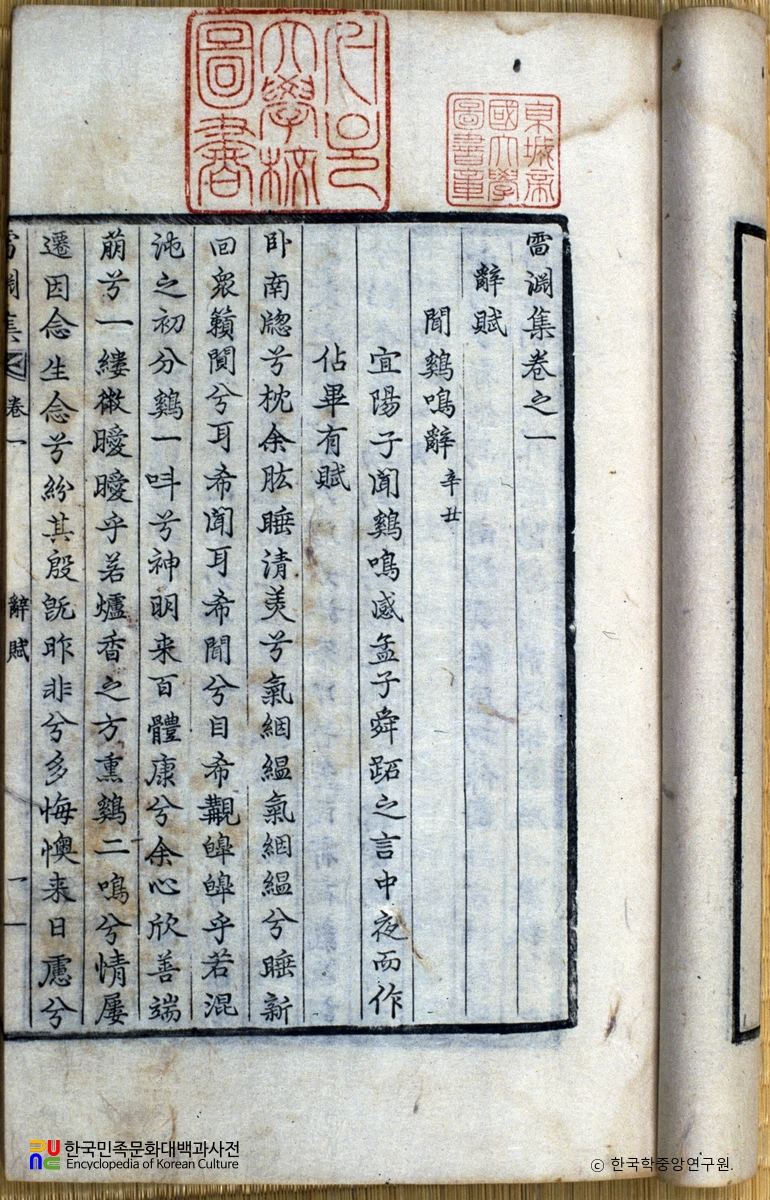 서울大學校圖書
京城帝國大學圖書章
雷淵集卷之一
辭賦
聞鷄鳴辭 辛丑
宜陽子聞鷄鳴感孟子舜跖之言中夜而作
佔畢有賦
卧南牕兮枕余肱睡清美兮氣絪縕氣絪縕兮睡新
回衆籟闃兮耳希聞耳希聞兮目希覯皥皥乎若混
沌之初分鷄一呌兮神明来百體康兮余心欣善端
萠兮一縷微曖曖乎若爐香之方熏鷄二鳴兮情屢
遷因念生念兮紛其殷旣昨非兮多悔懊来日慮兮
雷淵集 卷一 辭賦 一
한국민족문화대백과사전
Encyclopedia of Korean Culture
© 한국학중앙연구원.